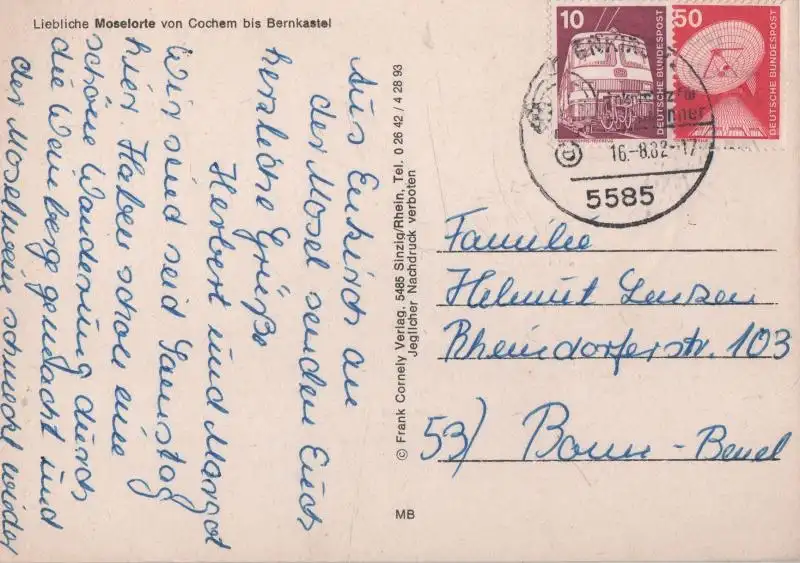 Liebliche Moselorte von Cochem bis Bernkastel
Aus Enkirch an
der Mosel senden Euch
herzliche Grüße
Herbert und Margot
Wir sind seid Samstag
hier. Haben schon eine
schöne Wanderung durch
die Weinberge gemacht und
der Moselwein schmeckt wieder
© Frank Cornely Verlag, 5485 Sinzig/Rhein, Tel. 0 26 42 / 4 28 93
Jeglicher Nachdruck verboten
MB
10
DEUTSCHE BUNDESPOST
50
DEUTSCHE BUNDESPOST
ENKIRCH
16.-8.82-17
5585
Familie
Helmut Lenzen
Rheindorferstr. 103
53) Bonn-Beuel